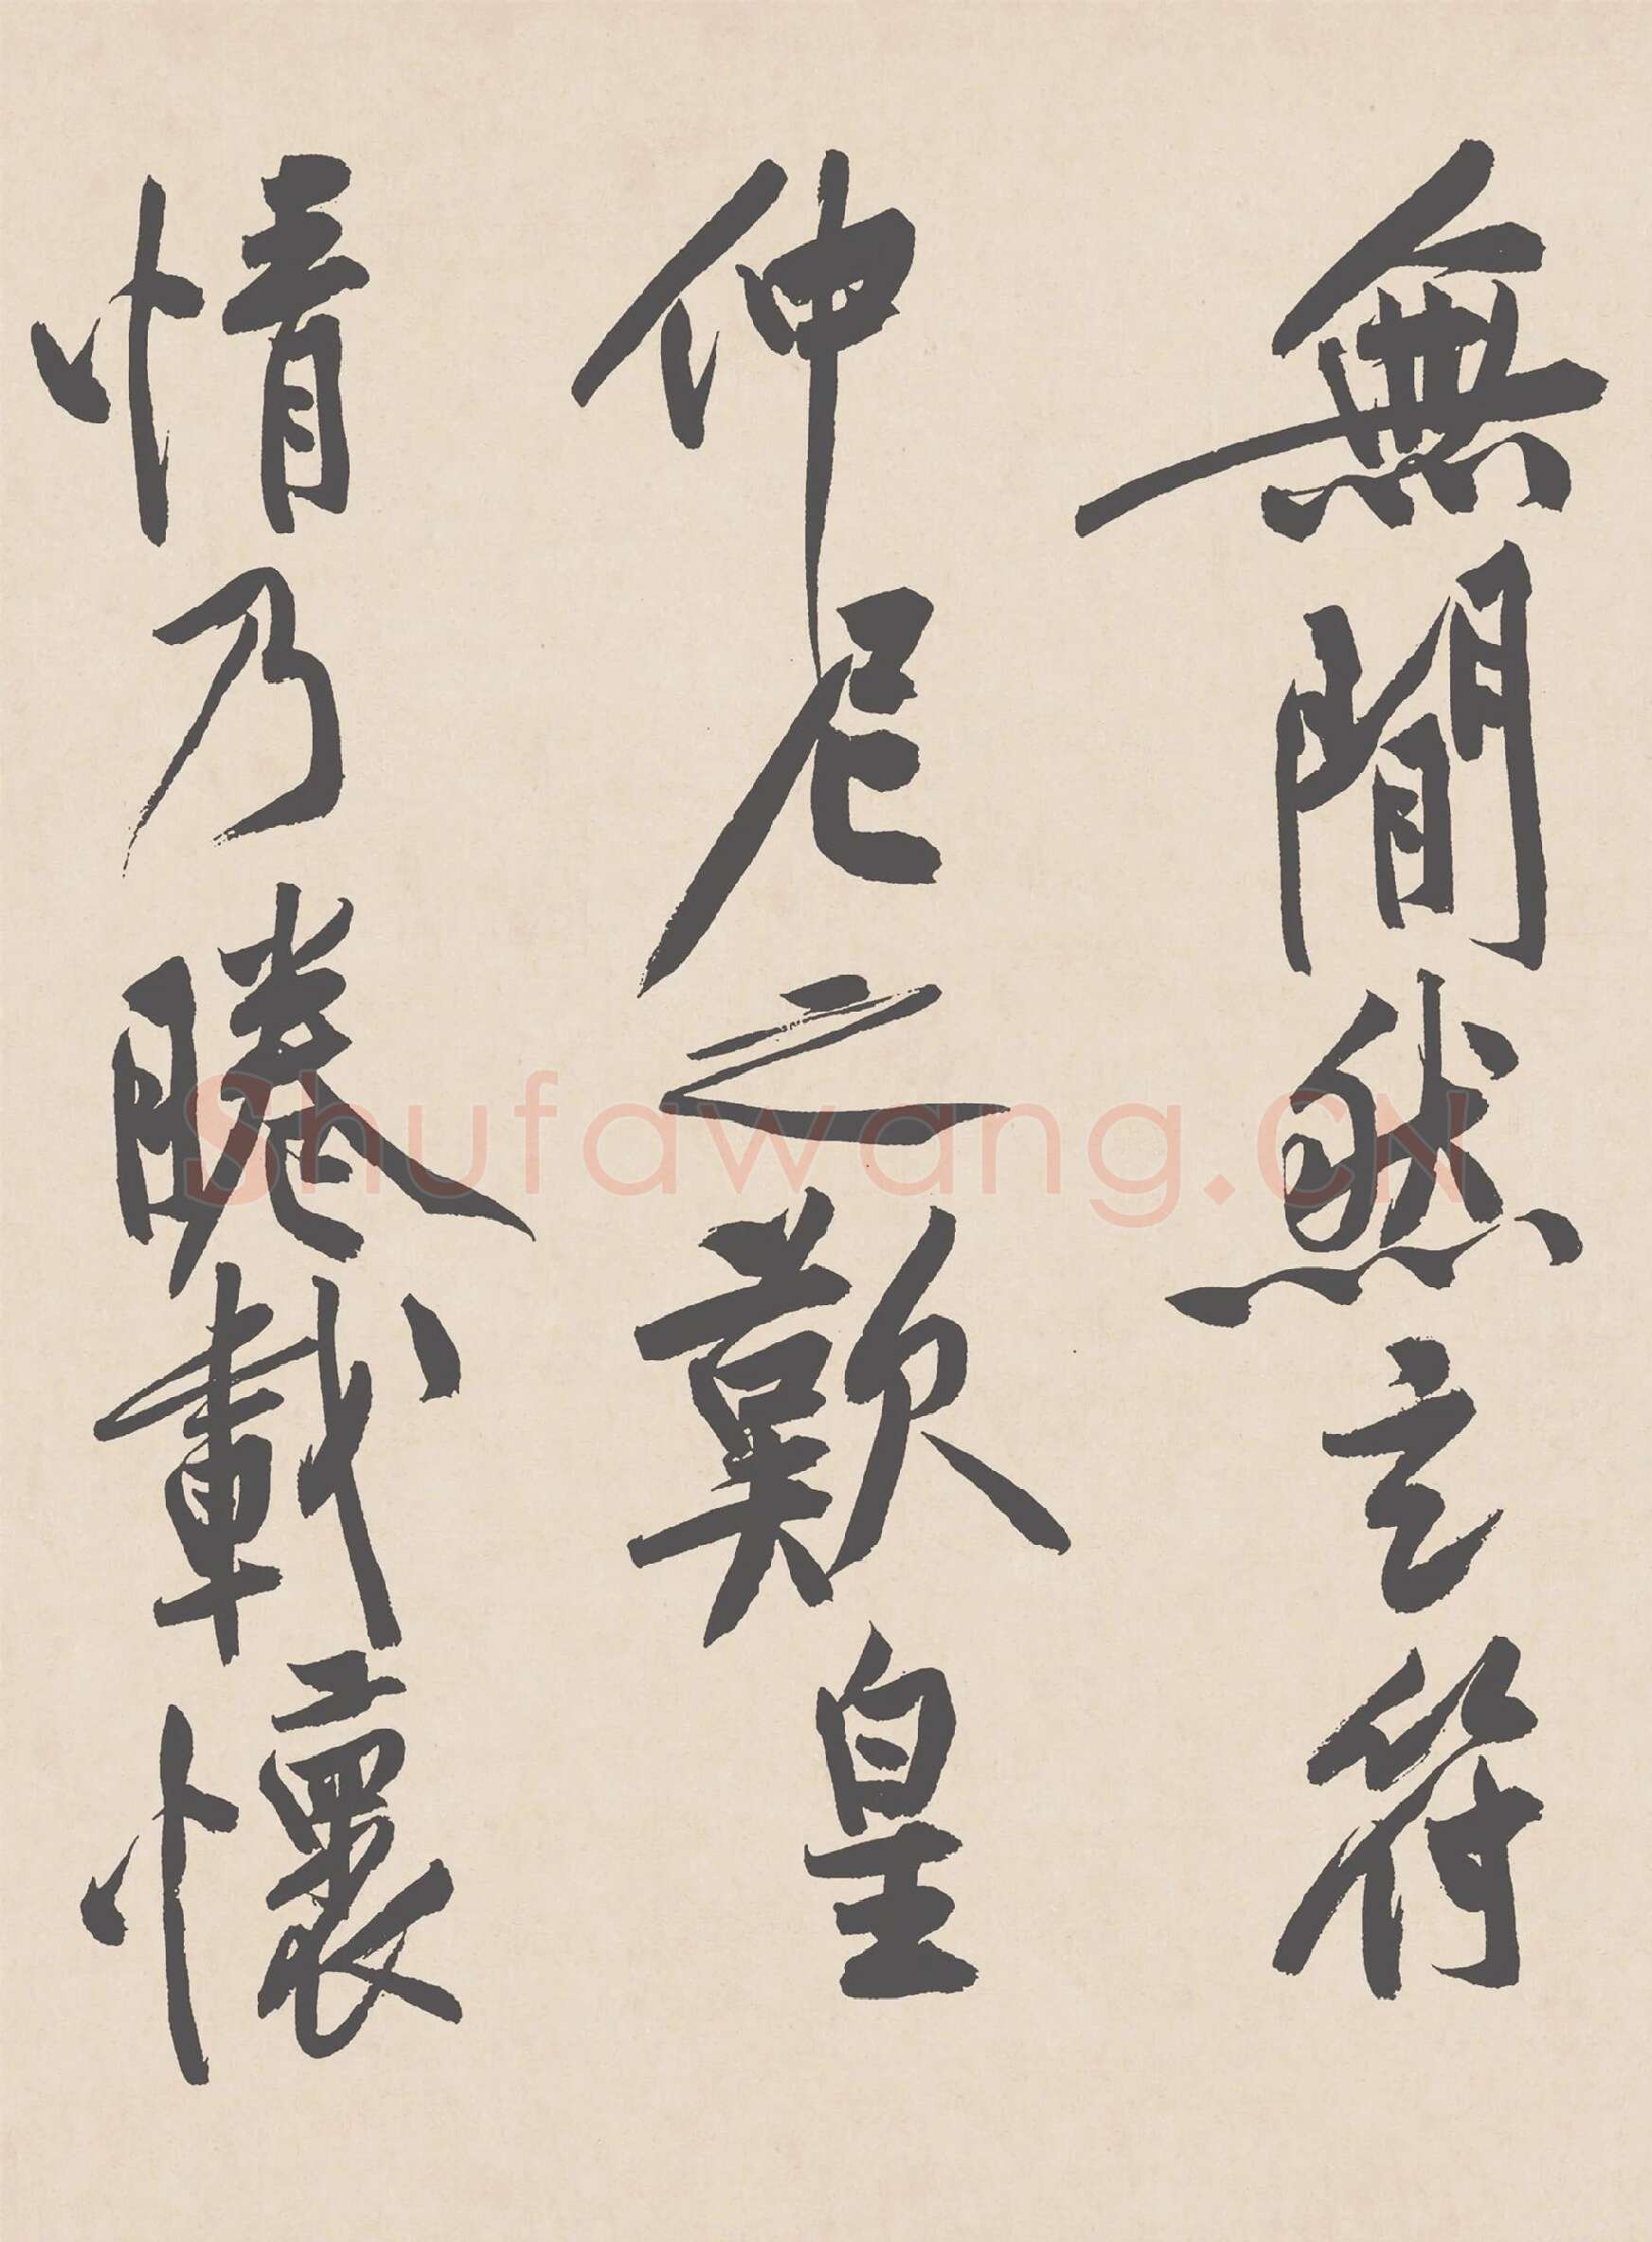 無閒然玄符
仲尼之歎皇
情乃睠載懷
Shufawang.CN